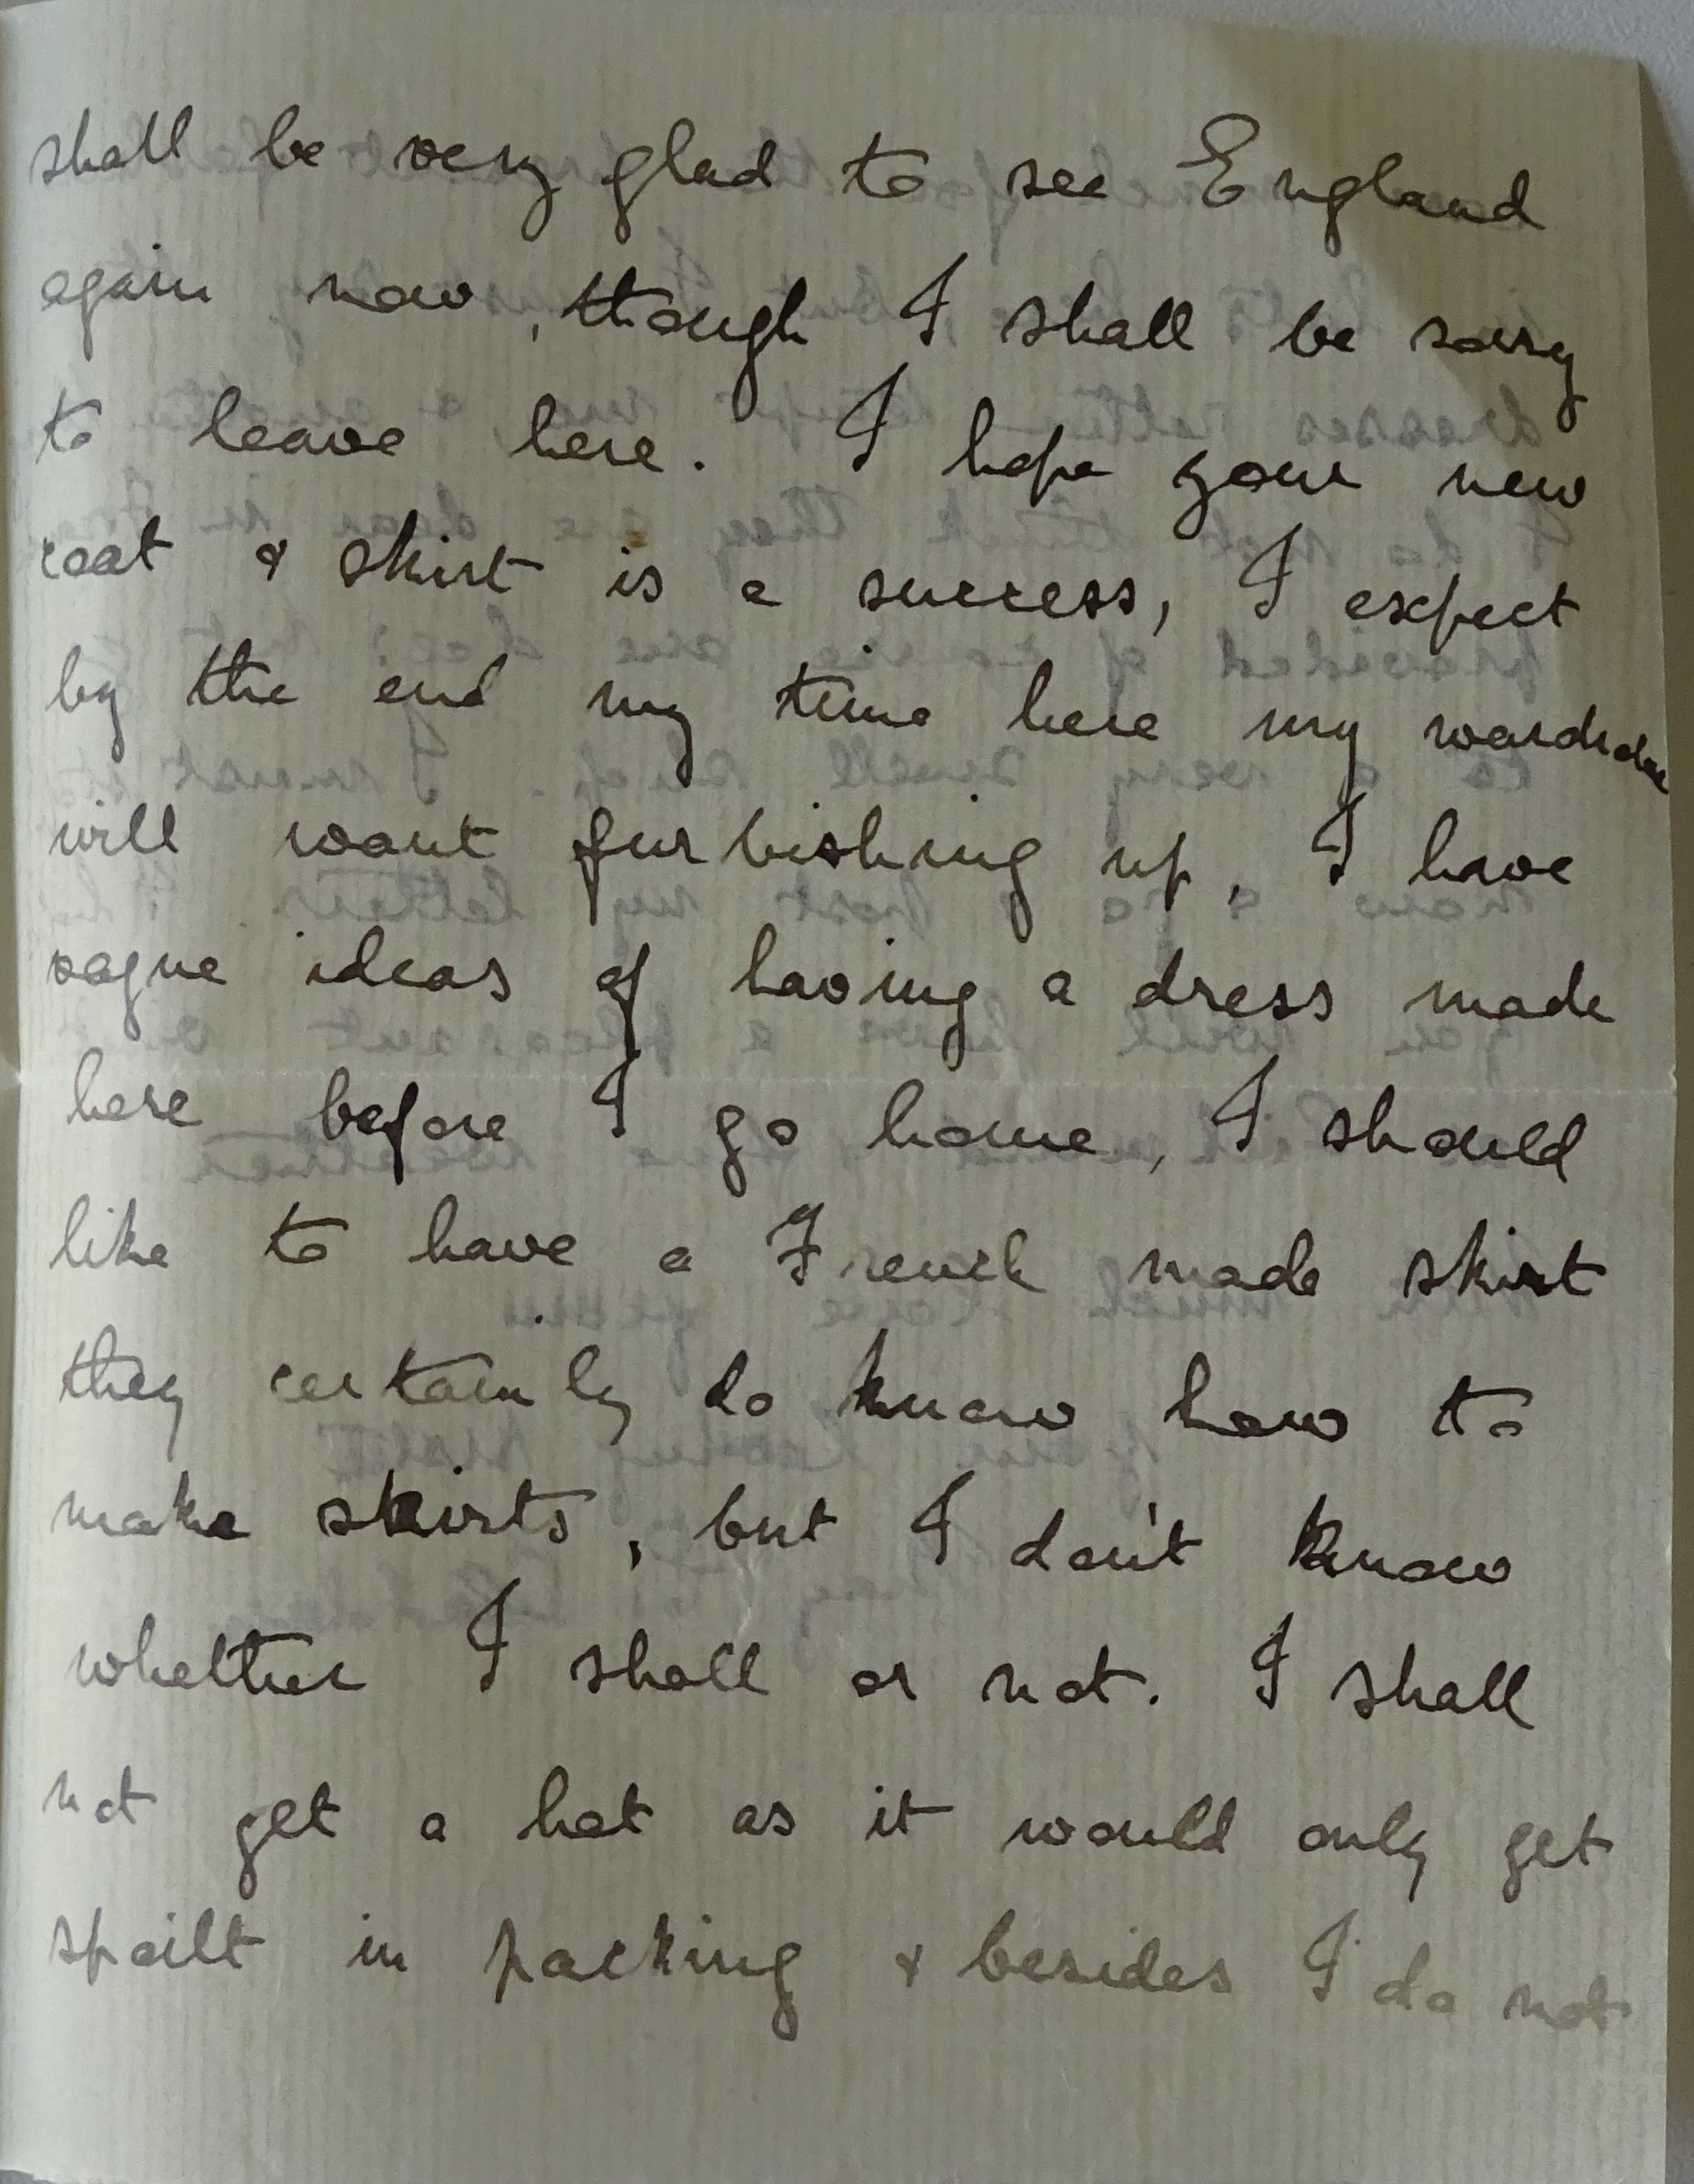 shall be very glad to see England
again now, though I shall be sorry
to leave here. I hope your new
coat & skirt is a success, I expect
by the end my time here my wardrobe
will want furbishing up, I have
vague ideas of having a dress made
here before I go home, I should
like to have a French made skirt
they certainly do know how to
make skirts, but I don't know
whether I shall or not. I shall
not get a hat as it would only get
spoilt in packing & besides I do not